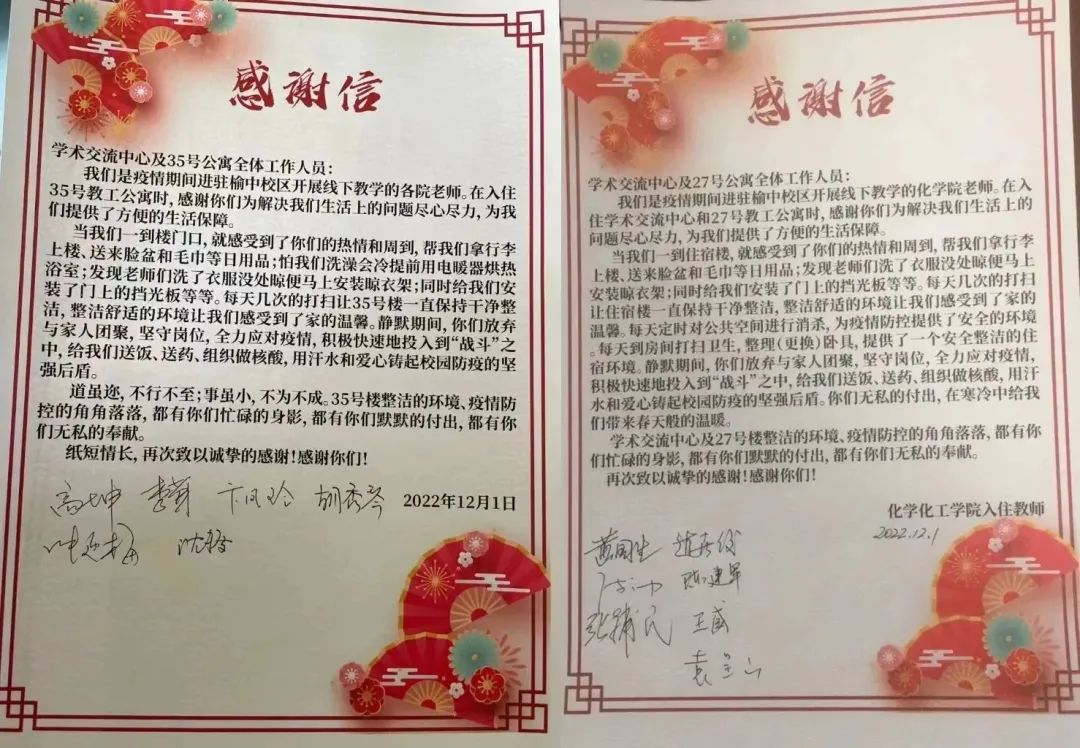 感谢信
学术交流中心及35号公寓全体工作人员：
我们是疫情期间进驻榆中校区开展线下教学的各院老师。在入住
35号教工公寓时，感谢你们为解决我们生活上的问题尽心尽力，为我
们提供了方便的生活保障。
当我们一到楼门口，就感受到了你们的热情和周到，帮我们拿行李
上楼、送来脸盆和毛巾等日用品；怕我们洗澡会冷提前用电暖器烘热
浴室；发现老师们洗了衣服没处晾便马上安装晾衣架；同时给我们安
装了门上的挡光板等等。每天几次的打扫让35号楼一直保持干净整
洁，整洁舒适的环境让我们感受到了家的温馨。静默期间，你们放弃
与家人团聚，坚守岗位，全力应对疫情，积极快速地投入到“战斗”之
中，给我们送饭、送药、组织做核酸，用汗水和爱心铸起校园防疫的坚
强后盾。
道虽迩，不行不至；事虽小，不为不成。35号楼整洁的环境、疫情防
控的角角落落，都有你们忙碌的身影，都有你们默默的付出，都有你
们无私的奉献。
纸短情长，再次致以诚挚的感谢！感谢你们！
卞凤玲 胡秀琴 2022年12月1日
感谢信
学术交流中心及27号公寓全体工作人员：
我们是疫情期间进驻榆中校区开展线下教学的化学院老师。在入
住学术交流中心和27号教工公寓时，感谢你们为解决我们生活上的
问题尽心尽力，为我们提供了方便的生活保障。
当我们一到住宿楼，就感受到了你们的热情和周到，帮我们拿行李
上楼、送来脸盆和毛巾等日用品；发现老师们洗了衣服没处晾便马上
安装晾衣架；同时给我们安装了门上的挡光板等等。每天几次的打扫
让住宿楼一直保持干净整洁，整洁舒适的环境让我们感受到了家的
温馨。每天定时对公共空间进行消杀，为疫情防控提供了安全的环境
。每天到房间打扫卫生，整理（更换）卧具，提供了一个安全整洁的住
宿环境。静默期间，你们放弃与家人团聚，坚守岗位，全力应对疫情，
积极快速地投入到“战斗”之中，给我们送饭、送药、组织做核酸，用汗
水和爱心铸起校园防疫的坚强后盾。你们无私的付出，在寒冷中给我
们带来春天般的温暖。
学术交流中心及27号楼整洁的环境、疫情防控的角角落落，都有你
们忙碌的身影，都有你们默默的付出，都有你们无私的奉献。
再次致以诚挚的感谢！感谢你们！
化学化工学院入住教师
2022.12.1
黄国生
陈建军
张辅民 王威